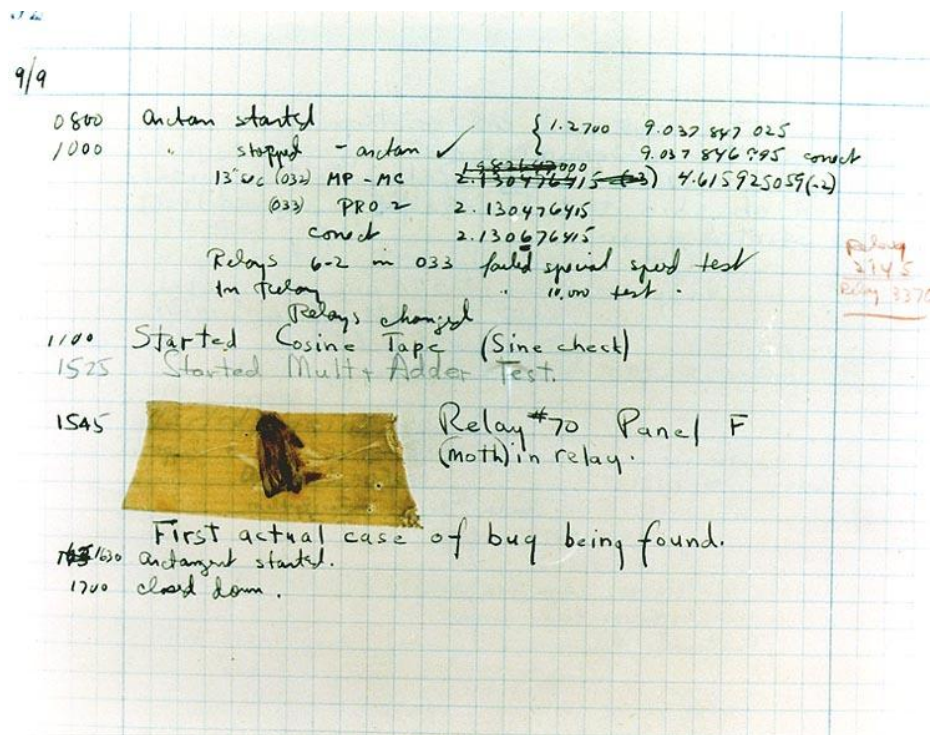 9/9
0800 arctan started { 1.2700 9.037 847 025
1000 " stopped - arctan ✓ 9.037 846 995 correct
13"uc (032) MP - MC 2.130476415 (-3) 4.615925059(-2)
(033) PRO 2 2.130476415
correct 2.130676415
Relays 6-2 in 033 failed special speed test
In relay " 10.000 test .
Relay
2145
Relay 3370
Relays changed
1100 Started Cosine Tape (Sine check)
1525 Started Mult + Adder Test.
1545 Relay #70 Panel F
(moth) in relay.
First actual case of bug being found.
1630 arctangent started.
1700 closed down .